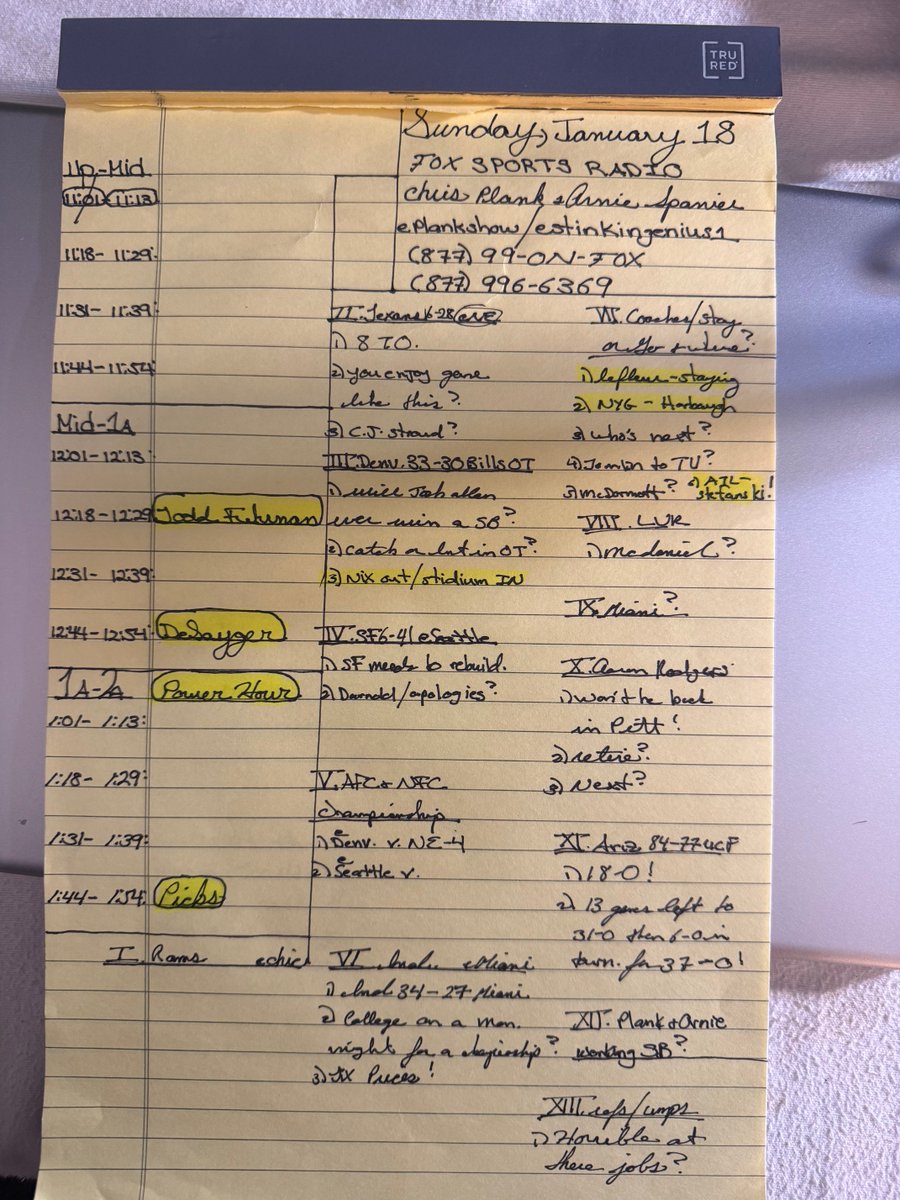 TRU
RED
Sunday, January 18
FOX SPORTS RADIO
Chris Plank & Arnie Spanier
@Plankshow/@stinkingenius1
(877) 99-ON-FOX
(877) 996-6369
11p-Mid
11:01-11:13
11:18-11:29:
11:31-11:39
11:44-11:54:
Mid-1A
12:01-12:13
12:18-12:29 Todd Fuhrman
12:31-12:39:
12:44-12:54: DeSayger
1A-2A Power Hour
1:01-1:13:
1:18-1:29:
1:31-1:39:
1:44-1:54: Picks
I. Rams @chic
II. Texans 6-28 @NE
1) 8 TO.
2) you enjoy game
like this?
3) C.J. Stroud?
III. Denv. 33-30 Bills OT
1) will Josh allen
ever win a SB?
2) catch or Int in OT?
3) Nix out/stidium IN
IV. SF 6-41 @Seattle
1) SF needs to rebuild.
2) Darnold/apologies?
V. AFC & NFC
Championship
1) @Denv. v. NE-4
2) @Seattle v.
VI. Ind. @Miami
1) Ind 34-27 Miami.
2) College on a mon.
night for a chapionship?
3) TIX Prices!
VII. Coaches/stay
or go & where?
1) lafleur-staying
2) NYG - Harbaugh
3) who's next?
4) Tomlin to TV?
5) McDermott?
6) ATL-
Stefanski!
VIII. LVR
1) Mcdaniel?
IX. Miami?
X. Aaron Rodgers
1) won't be back
in Pitt!
2) retire?
3) Next?
XI. Ariz 84-77 UCF
1) 18-0!
2) 13 games left to
31-0 then 6-0 in
tourn. for 37-0!
XII. Plank & Arnie
working SB?
XIII. refs/umps
1) Horrible at
there jobs?